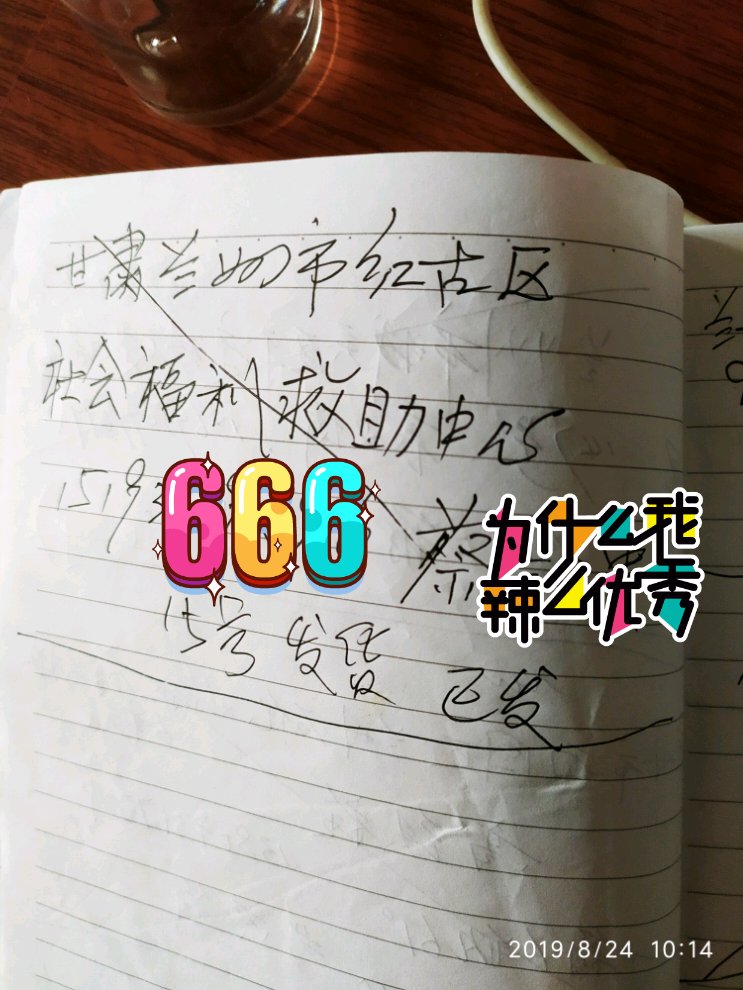 甘肃兰州市红古区
社会福利救助中心
1519
666
蔡
为什么我
辣么优秀
15号发货 已发
2019/8/24 10:14